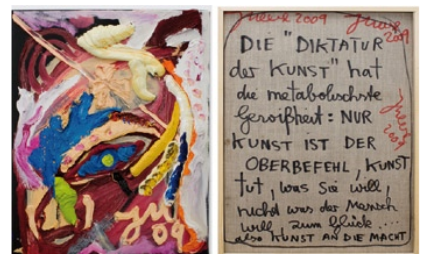 09
Meese 2009
2009
DIE "DIKTATUR
der KUNST" hat
die metabolischste
Gewißheit: NUR
KUNST IST DER
OBERBEFEHL, KUNST
tut, was Sie will,
nicht was der Mensch
will, zum Glück....
also KUNST AN DIE MACHT